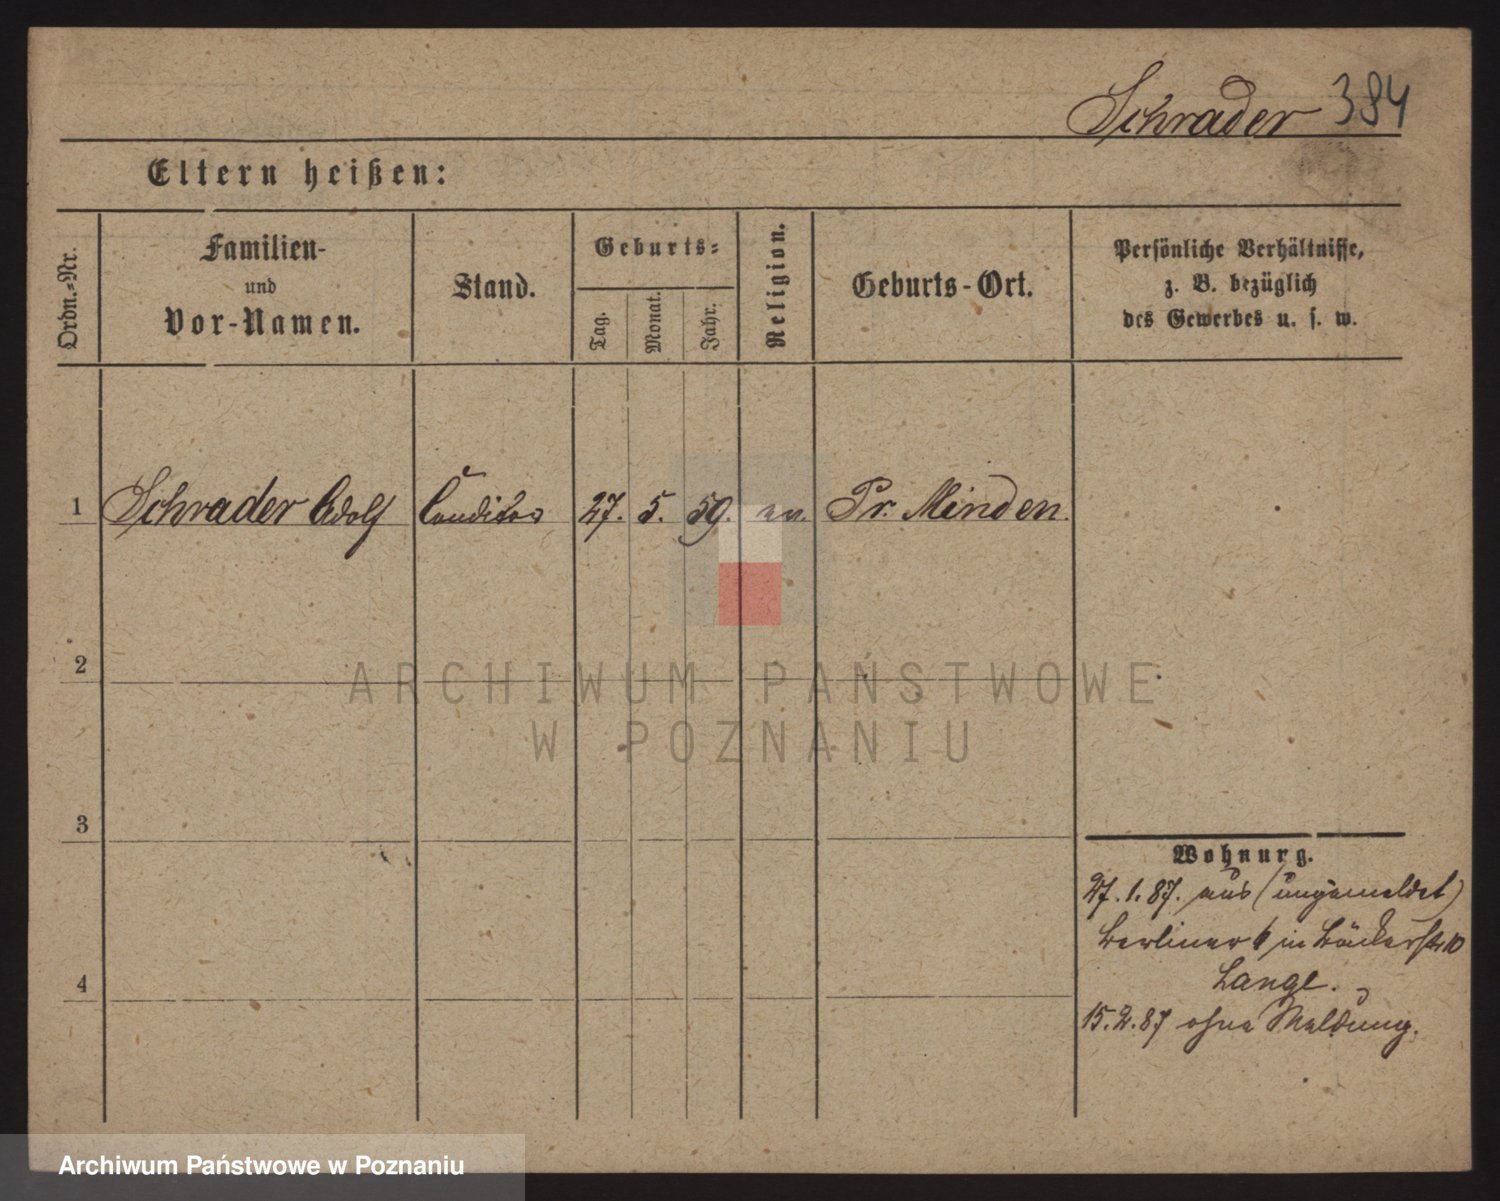 Schrader 384
Eltern heißen:
Ordn.-Nr.
Familien-
und
Vor-Namen.
Stand.
Geburts-
Tag.
Monat.
Jahr.
Religion.
Geburts-Ort.
Persönliche Verhältnisse,
z. B. bezüglich
des Gewerbes u. s. w.
1 Schrader Adolf Conditor 27. 5. 59. ev. Pr. Minden.
2
3
4
Wohnung.
27.1.87. aus (ungemeldet)
Berliner 6 in Bäckerstr 10
Lange.
15.2.87 ohne Meldung.
ARCHIWUM PAŃSTWOWE
W POZNANIU
Archiwum Państwowe w Poznaniu